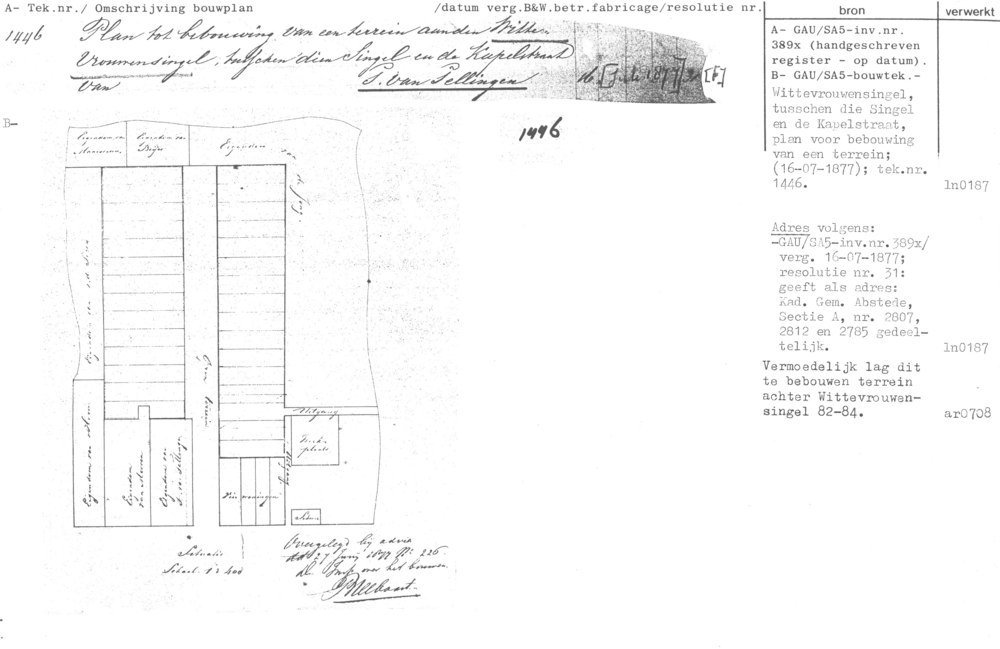 A- Tek.nr./ Omschrijving bouwplan /datum verg.B&W.betr.fabricage/resolutie nr.
bron
verwerkt
1446 Plan tot bebouwing van een terrein aan den Witte-
Vrouwensingel, tusschen dien Singel en de Kapelstraat
van S. van Sellingen 16 [Juli 1877] 31 [f]
B-
1446
A- GAU/SA5-inv.nr.
389x (handgeschreven
register - op datum).
B- GAU/SA5-bouwtek.-
Wittevrouwensingel,
tusschen die Singel
en de Kapelstraat,
plan voor bebouwing
van een terrein;
(16-07-1877); tek.nr.
1446. ln0187
Adres volgens:
-GAU/SA5-inv.nr.389x/
verg. 16-07-1877;
resolutie nr. 31:
geeft als adres:
Kad. Gem. Abstede,
Sectie A, nr. 2807,
2812 en 2785 gedeel-
telijk. ln0187
Vermoedelijk lag dit
te bebouwen terrein
achter Wittevrouwen-
singel 82-84. ar0708
Eigendom van
Eigendom van
Eigendom
van de
Eigendom van
Uitgang
Eigendom van
Eigendom
Eigendom van
Vier woningen
Situatie
Schaal 1 à 400
Overgelegd bij advies
dd 27 Junij 1877 No 226
over het bouwen